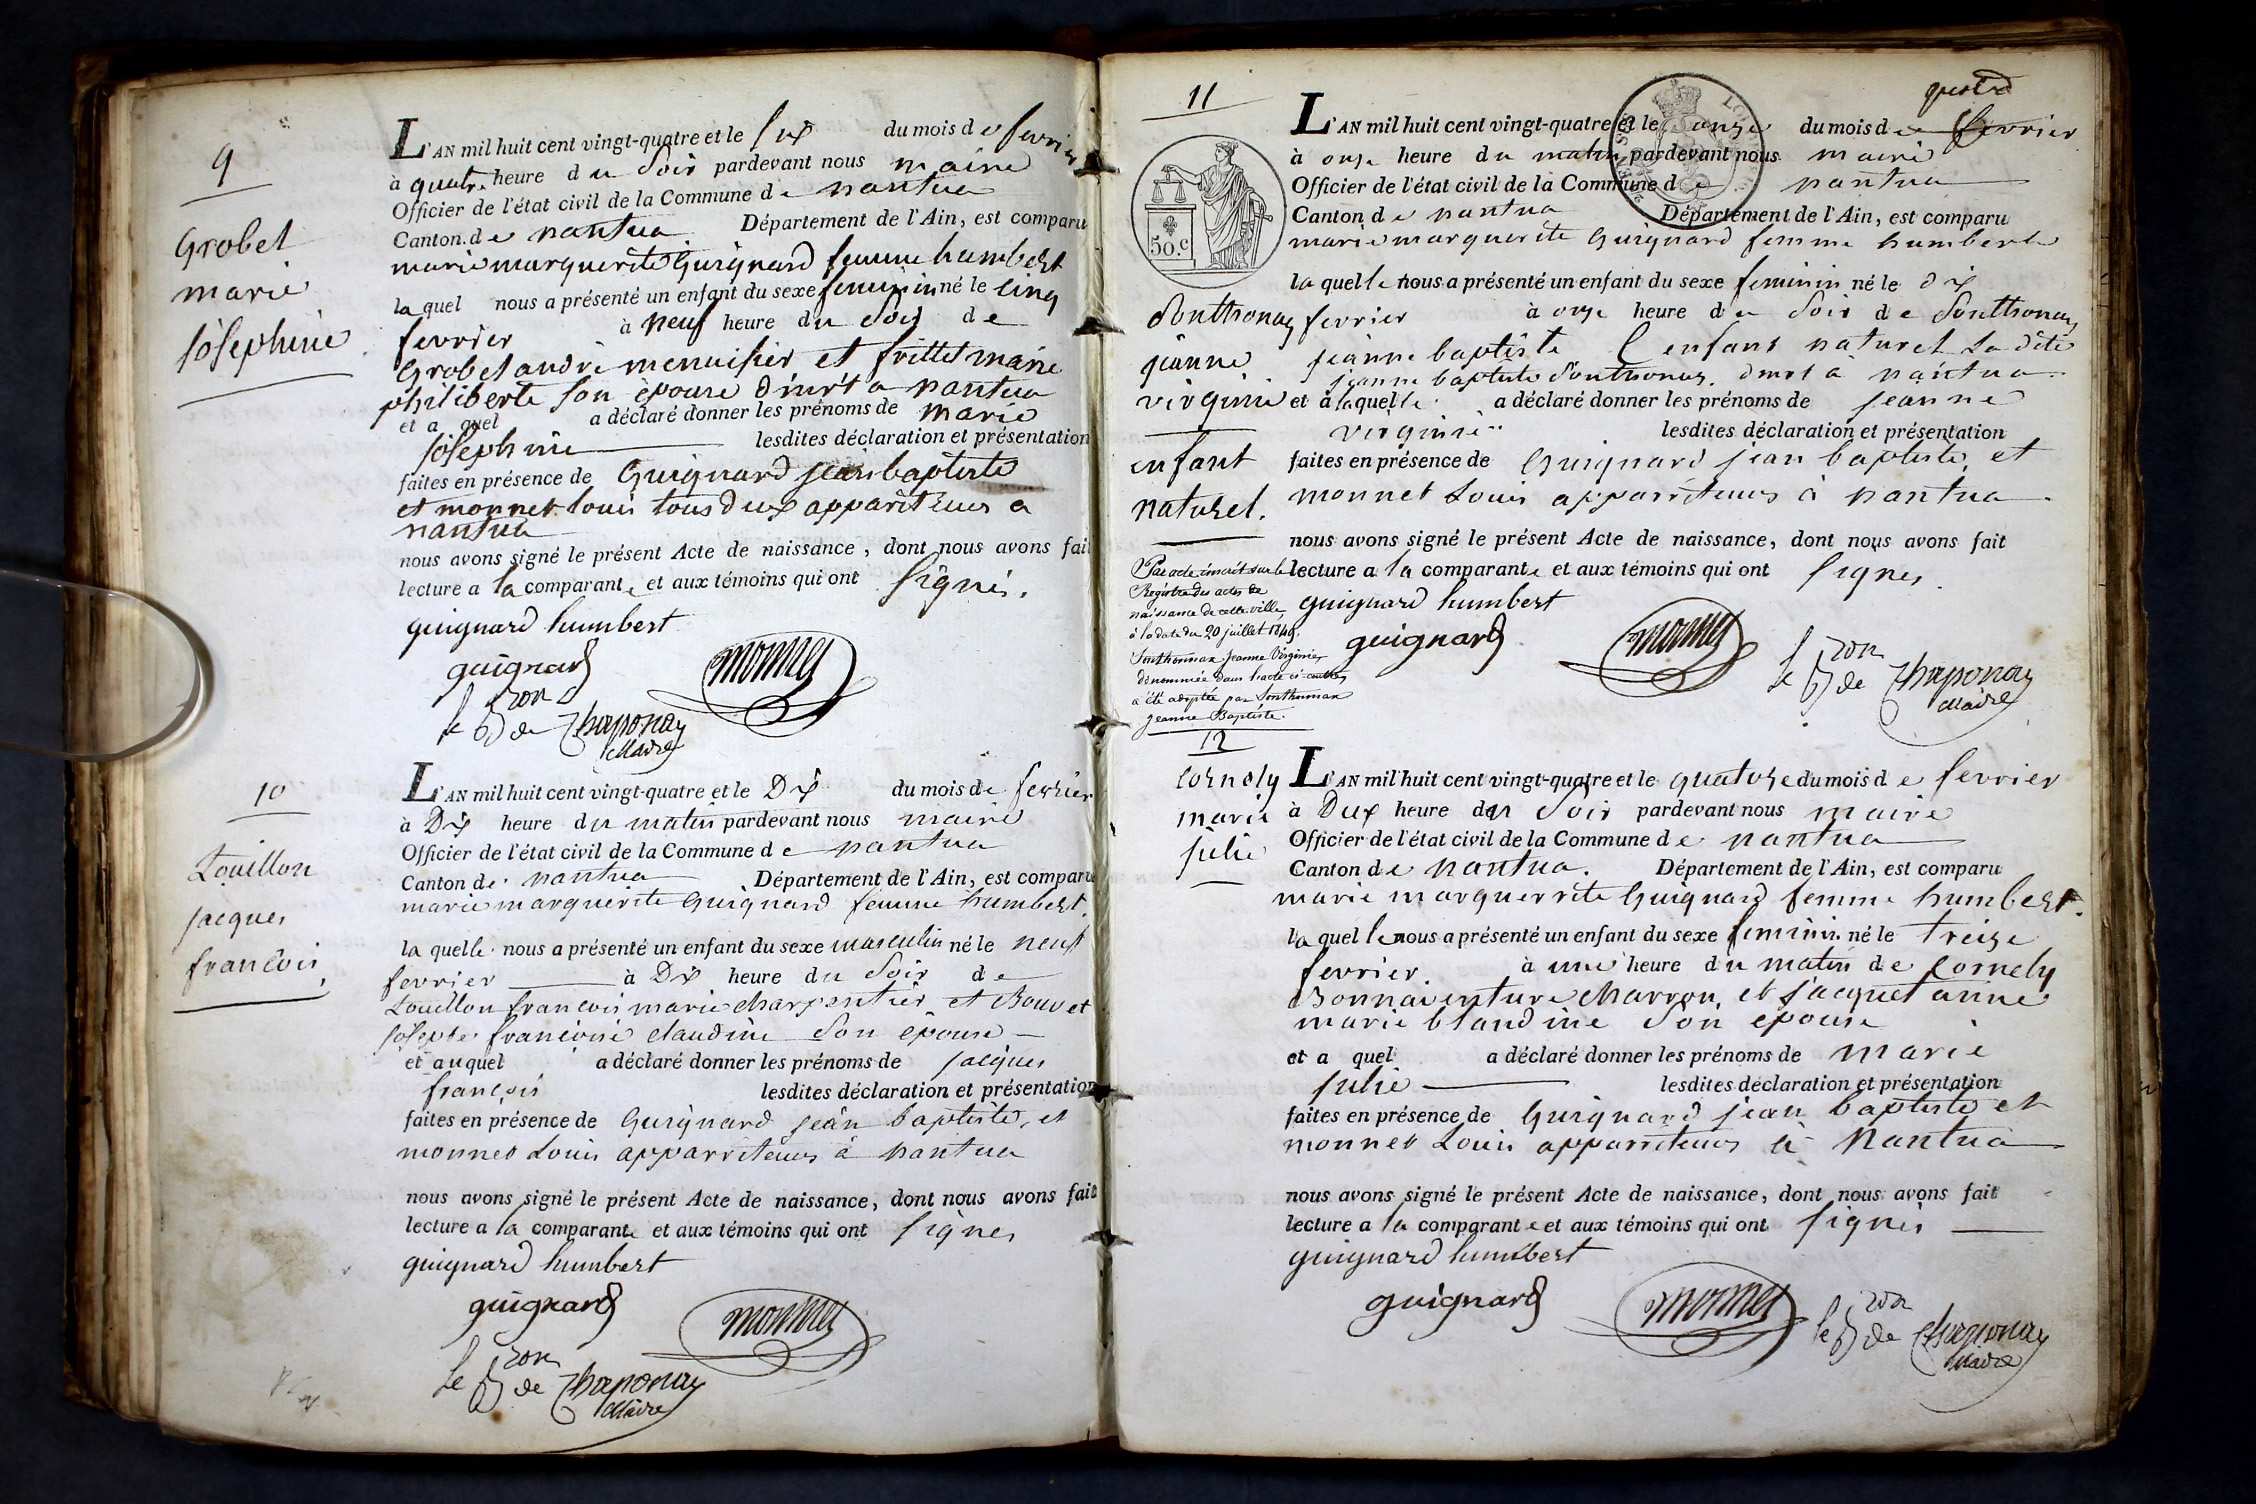 9
Grobet
marie
joséphine
L'AN mil huit cent vingt-quatre et le six du mois de fevrier
à quatre heure du soir pardevant nous maire
Officier de l'état civil de la Commune de nantua
Canton de nantua Département de l'Ain, est comparu
marie marguerite Guignard femme humbert
la quel nous a présenté un enfant du sexe feminin né le cinq
fevrier à neuf heure du soir de
Grobet andré menuisier et frillet marie
philiberte son épouse dmrt a nantua
et a quel a déclaré donner les prénoms de marie
joséphine lesdites déclaration et présentation
faites en présence de Guignard jean baptiste
et monnet louis tous deux appariteurs a
nantua
nous avons signé le présent Acte de naissance, dont nous avons fait
lecture a la comparante et aux témoins qui ont signés.
guignard humbert
guignard
monnet
le Bon de Chaponay
Maire
10
Louillon
jacques
francois
L'AN mil huit cent vingt-quatre et le Dix du mois de fevrier
à Dix heure du matin pardevant nous maire
Officier de l'état civil de la Commune de nantua
Canton de nantua Département de l'Ain, est comparu
marie marguerite Guignard femme humbert.
la quelle nous a présenté un enfant du sexe masculin né le neuf
fevrier à Dix heure du soir de
Louillon francois marie charpentier et Bouvet
josephe francoise claudine son épouse
et auquel a déclaré donner les prénoms de jacques
françois lesdites déclaration et présentation
faites en présence de Guignard jean baptiste, et
monnet Louis apparriteurs à nantua
nous avons signé le présent Acte de naissance, dont nous avons fait
lecture a la comparante et aux témoins qui ont signes
guignard humbert
guignard
monnet
le Bon de Chaponay
Maire
11
50.c
Sonthonax
jeanne
virginie
enfant
naturel.
Par acte inscrit sur le
Registre des actes de
naissance de cette ville,
à la date du 20 juillet 1849.
Sonthonnax Jeanne Virginie,
dénommée dans l'acte ci-contre,
a été adoptée par Sonthonnax
Jeanne Baptiste.
L'AN mil huit cent vingt-quatre et le onze du mois de fevrier
à onze heure du matin pardevant nous maire
Officier de l'état civil de la Commune de nantua
Canton de nantua Département de l'Ain, est comparu
marie marguerite Guignard femme humbert
la quelle nous a présenté un enfant du sexe feminin né le dix
fevrier à onze heure du soir de Sonthonax
jeanne baptiste l'enfant naturel La dite
jeanne baptiste Sonthonax. dmrt à nantua
et à laquelle a déclaré donner les prénoms de jeanne
virginie lesdites déclaration et présentation
faites en présence de Guignard jean baptiste, et
monnet Louis apparriteurs à nantua
nous avons signé le présent Acte de naissance, dont nous avons fait
lecture a la comparante et aux témoins qui ont signes.
guignard humbert
guignard
monnet
le Bon de Chaponay
Maire
12
Cornely
marie
julie
L'AN mil huit cent vingt-quatre et le quatorze du mois de fevrier
à Deux heure du soir pardevant nous maire
Officier de l'état civil de la Commune de nantua
Canton de nantua. Département de l'Ain, est comparu
marie marguerrite Guignard femme humbert.
la quelle nous a présenté un enfant du sexe feminin né le treize
fevrier. à une heure du matin de Cornely
Bonnaventure charron, et jacquet anne
marie blandine son épouse
et a quel a déclaré donner les prénoms de marie
julie lesdites déclaration et présentation
faites en présence de Guignard jean baptiste et
monnet Louis apparriteurs à Nantua
nous avons signé le présent Acte de naissance, dont nous avons fait
lecture a la comparante et aux témoins qui ont signés
guignard humbert
guignard
monnet
le Bon de Chaponay
Maire